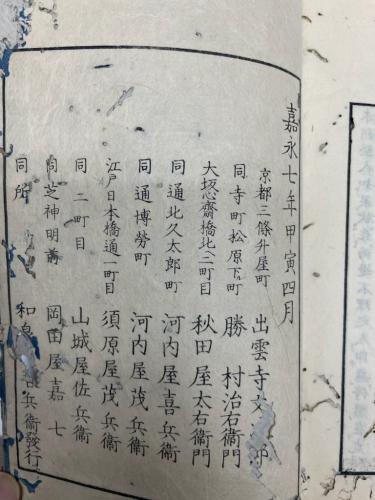 嘉永七年甲寅四月
京都三條升屋町 出雲寺文
同寺町松原下町 勝村治右衛門
大坂心齋橋北二町目 秋田屋太右衛門
同通北久太郎町 河内屋喜兵衛
同通博勞町 河内屋茂兵衛
江戸日本橋通一町目 須原屋茂兵衛
同二町目 山城屋佐兵衛
同芝神明前 岡田屋嘉七
同所 和 兵衛發行